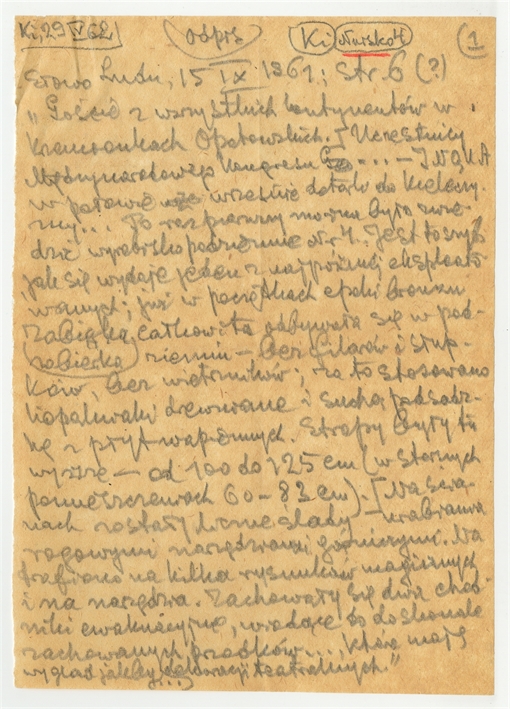 Ki, 29 V 62 odpis Ki Narzkoł 1
Słowo Ludu, 15 IX 1961; str. 6 (?)
„Goście z wszystkich kontynentów w
Krzemionkach Opatowskich. [Uczestnicy
Międzynarodowego Kongresu ... – INQUA
w połowie września dotarło do Kielecczy-
zny... To raz pierwszy można było zwie-
dzić wyrobisko podziemne nr 4. Jest to szyb
jak się wydaje jeden z najpóźniej eksploato
wanych; już w początkach epoki bronzu
zabiórka całkowita odbywała się w pod-
zabierka ziemiu – bez filarów i słup-
ków, bez wietrzników; za to stosowano
kopalniaki drewniane i suchą podsadz-
kę z płyt wapiennych. Stropy były tu
wyższe – od 100 do 125 cm (w starszych
pomieszczeniach 60 – 83 cm). – [Na ścia-
nach zostały liczne ślady wrąbiania
rogowymi narzędziami górniczymi. Na
trafiono na kilka rysunków magicznych
i na narzędzia. Zachowały się dwa chod-
niki ewakuacyjne, wiodące do doskonale
zachowanych przodków..., które mają
wygląd jakby dekoracji teatralnych."
(...)